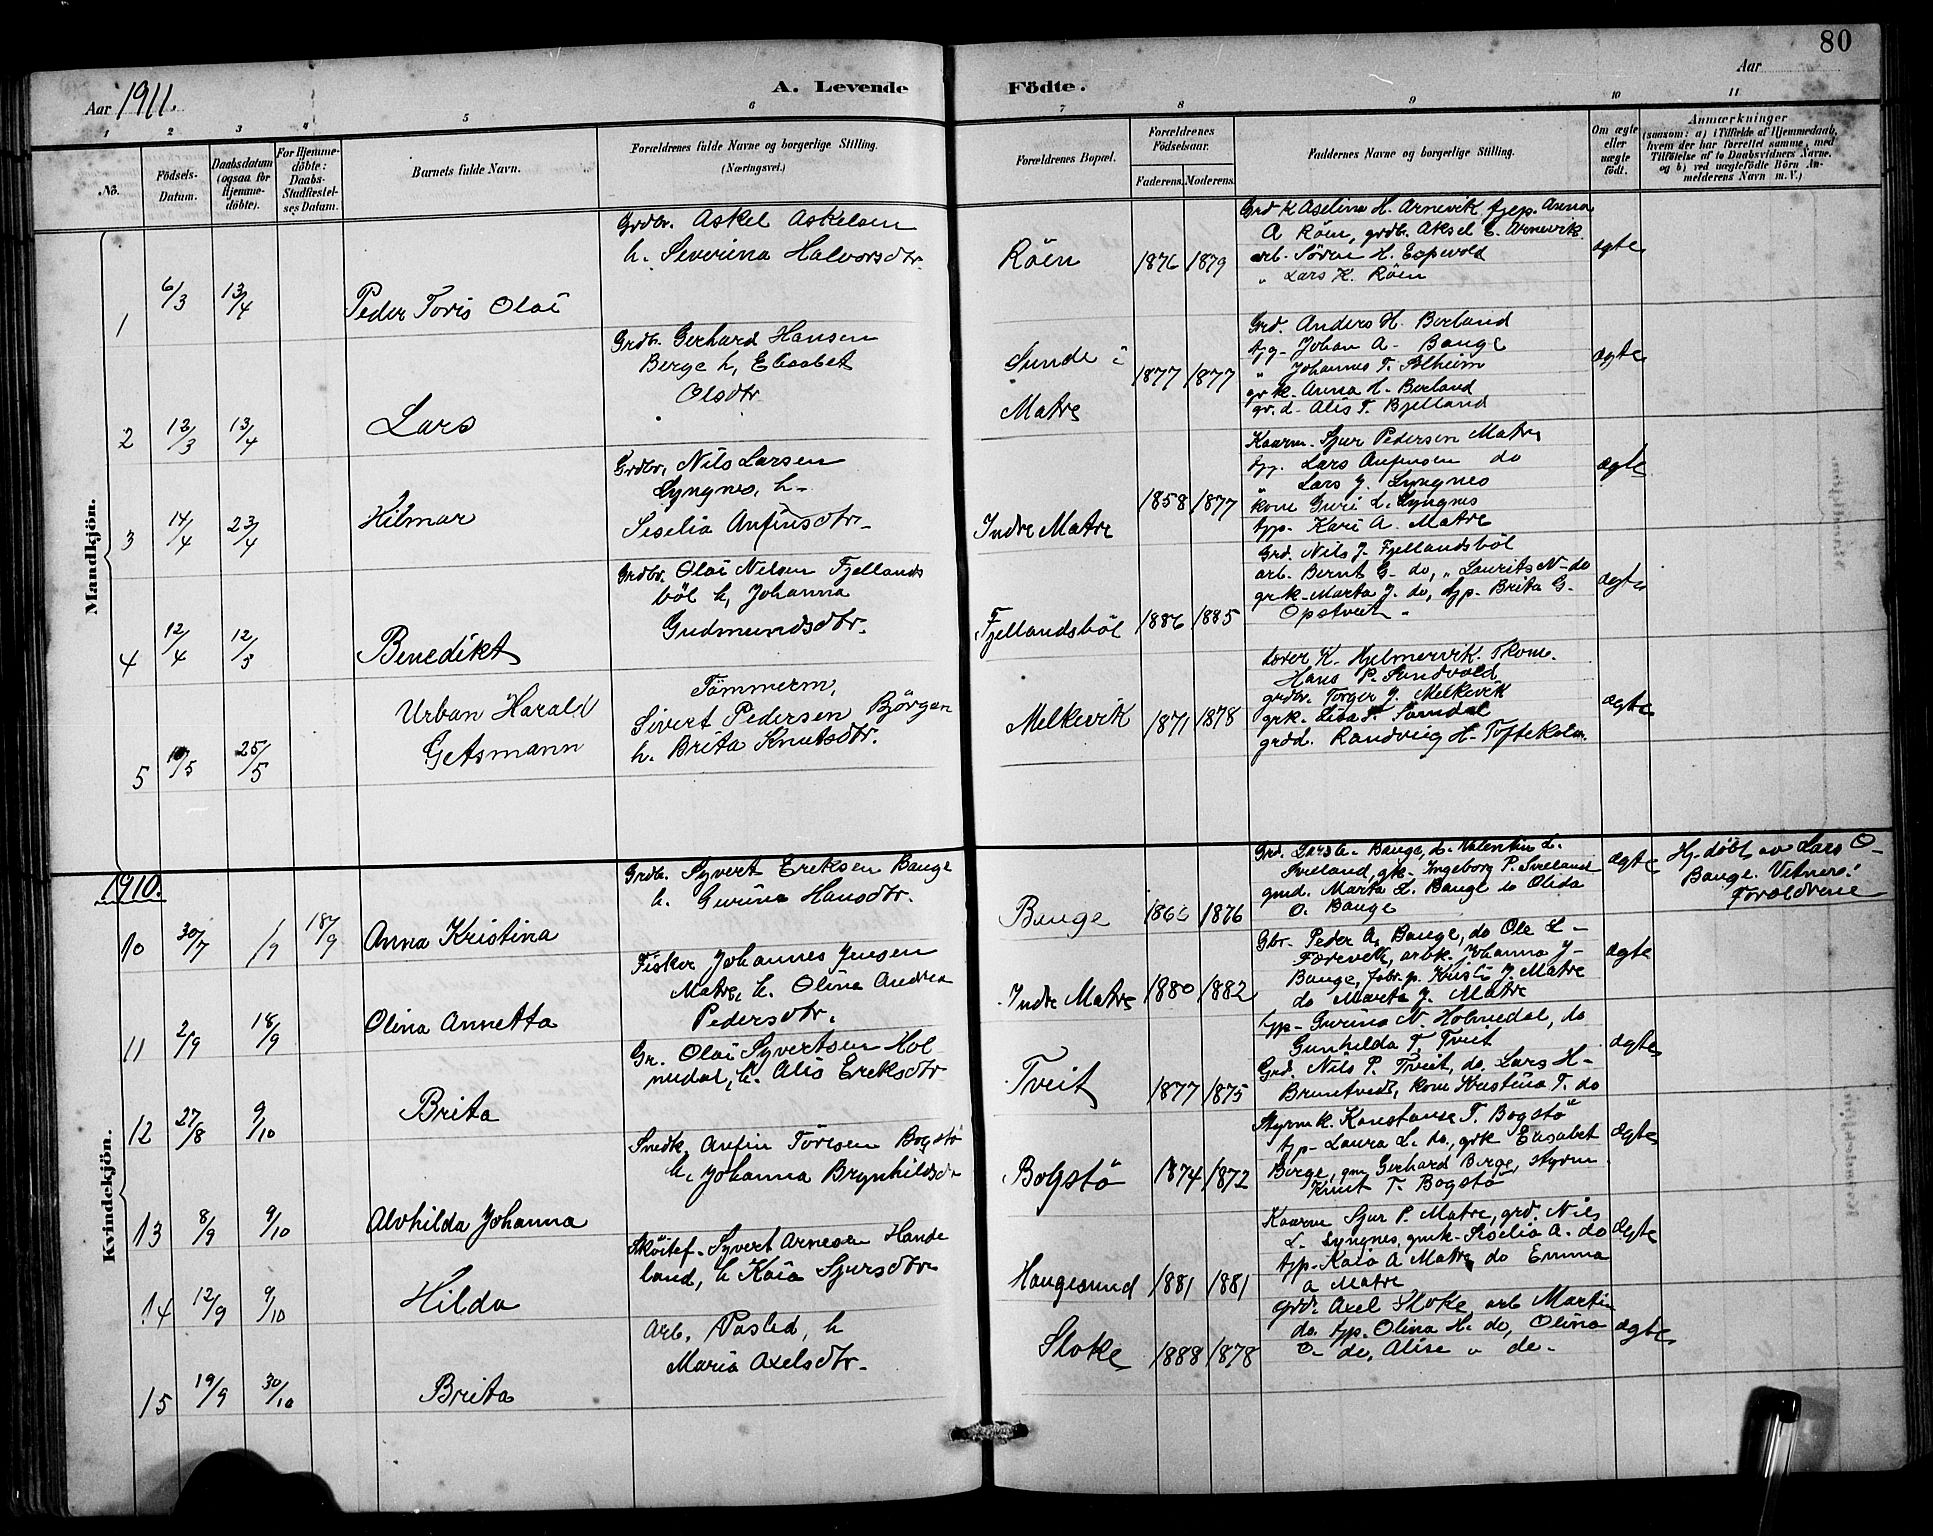 80
Aar 1911.
A. Levende Födte.
Aar
1 2 3 4 5 6 7 8 9 10 11
Nô.
Födsels-Datum.
Daabsdatum (ogsaa for Hjemme-döbte).
For Hjemme-döbte: Daabs-Stadfæstel-ses Datum.
Barnets fulde Navn.
Forældrenes fulde Navne og borgerlige Stilling.
(Næringsvei.)
Forældrenes Bopæl.
Forældrenes Födselsaar.
Faderens. Moderens.
Faddernes Navne og borgerlige Stilling.
Om ægte eller uægte födt.
Anmærkninger
(saasom: a) i Tilfælde af Hjemmedaab, hvem der har forrettet samme, med Tilföielse af to Daabsvidners Navne, og b) ved uægtefödte Börn Anmelderens Navn m. V.)
Mandkjön.
1 6/3 13/4 Peder Toris Olai
Grdbr. Askel Askelsen
h. Severina Halvorsdtr.
Röen 1876 1879
Grd k Aselina H. Arnevik tjep. Anna
A Röen, grdb. Aksel E. Arnevik
arb. Sören H. Espevold
" Lars K. Röen
ægte
2 12/3 13/4 Lars
Grdb. Gerhard Hansen
Berge h, Elisabet
Olsdtr
Sunde i
Matre
1877 1877
Grd. Anders H. Berland
tjg- Johan A- Bauge
" Johannes T. Solheim
gr k. Anna H- Berland
gr. d- Alis T. Bjelland
ægte
3 14/4 23/4 Hilmar
Grdbr. Nils Larsen
Lyngnes, h-
Siselia Anfinsdtr-
Indre Matre 1858 1877
Kaarm. Sjur Pedersen Matre
tjg. Lars Anfinsen do
" Lars J. Lyngnes
kone Guri L. Lyngnes
tjp. Kari A. Matre
ægte
4 12/4 12/5 Benedikt
Grdbr. Olai Nilsen Fjellands
böl h, Johanna
Gudmundsdtr.
Fjellandsböl 1886 1885
Grd. Nils J. Fjellandsböl
arb. Bernt G- do, " Laurits N- do
gr k- Marta J. do, tjp- Brita G-
Opstveit -
ægte
5 10/5 25/5 Urban Harald
Getsmann
Tömmerm,
Sivert Pedersen Björgen
h. Brita Knutsdtr.
Melkevik 1871 1878
Lærer K. Hjelmervik. Tkom.
Hans P. Sundvold
grdbr. Torger J. Melkevik
grk. Lisa T. Sörndal
grdd. Randveig H- Toftekalv.
ægte
1910.
Kvindekjön.
10 30/7 /9 18/9 Anna Kristina
Grdb. Syvert Eriksen Bauge
h. Gurina Hansdtr.
Bauge 1876
Svieland, grk- Ingeborg P. Svieland
gmd. Marta L. Bauge Olida
O. Bauge
ægte
Hj. döbt av Lars O-
Bauge. Vitner:
Foroldrene
11 2/9 18/9 Olina Annetta
Fisker Johannes Jensen
Matre, h. Olina Andrea
Pedersdtr.
Indre Matre 1880 1882
Gbr. Peder A, Bauge, do Ole L-
Færevik, arbk. Johanna J-
Bauge, fabr. p. Kristi J. Matre
do Marta J. Matre
ægte
12 27/8 9/10 Brita
Gr. Olai Syvertsen Hol
medal, h. Alis Eriksdtr
Tveit 1877 1875
tjp- Gurina N. Holmedal, do
Gunhilda T. Tveit
Grd. Nils P. Tveit, do, Lars H-
Bruntveit, kone Kristina T. do
ægte
13 8/9 9/10 Alvhilda Johanna
Snedk. Anfin Töresen Bogstö
h. Johanna Brynhildsd-
Bogstö 1874 1872
Styrm k. Konstanse T. Bogstö
tjp- Laura L. do, grk Elisabet
Berge, gm Gerhard Berge, styrm
Knut T. Bogstö
ægte
14 12/9 9/10 Hilda
Sköitef. Syvert Arnesen Hande
land, h Kaia Sjursdtr
Haugesund 1881 1881
Kaarm Sjur P. Matre, grd. Nils
L. Lyngnes, gmk- Siselia A. do
tjp- Kaia A Matre do Emma
A Matre
ægte
15 19/9 30/10 Brita
Arb. h
Maria Axelsdtr-
Stoke 1888 1878
Grd. Axel Stoke, arb Martin
do tjp. Olina H. do, Olina
O- do, Alise " do-
ægte